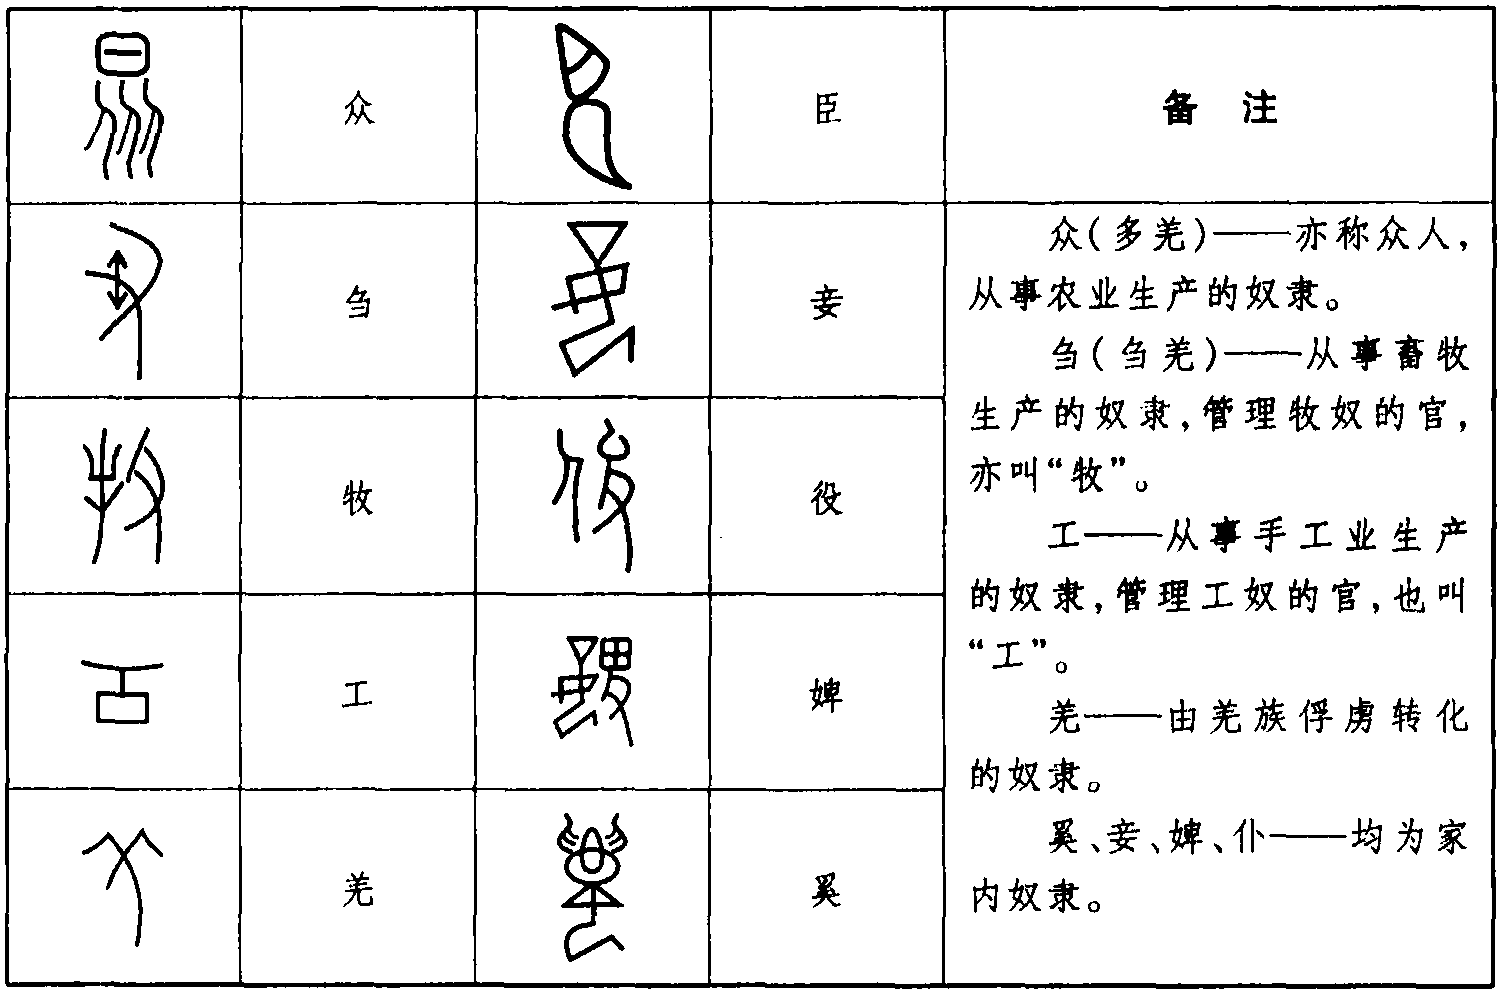 众 臣 备 注
刍 妾
牧 役
工 婢
羌 奚
众(多羌)——亦称众人,
从事农业生产的奴隶。
刍(刍羌)——从事畜牧
生产的奴隶,管理牧奴的官,
亦叫“牧”。
工——从事手工业生产
的奴隶,管理工奴的官,也叫
“工”。
羌——由羌族俘虏转化
的奴隶。
奚、妾、婢、仆——均为家
内奴隶。